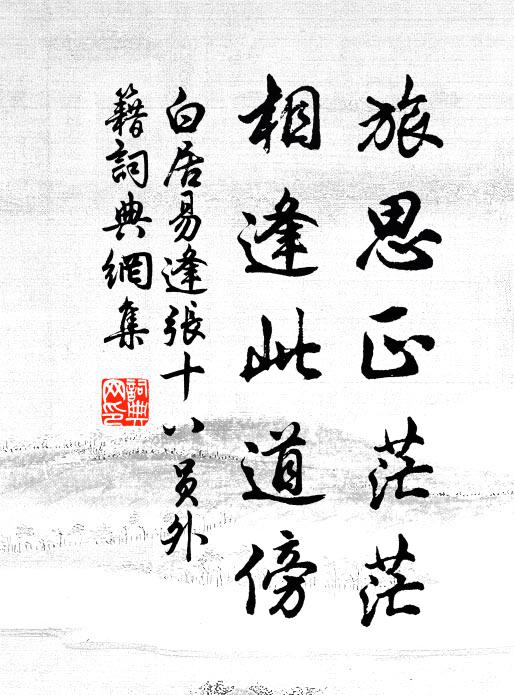 旅思正茫茫
相逢此道傍
白居易逢張十八員外
籍詞典網集
詞典网印